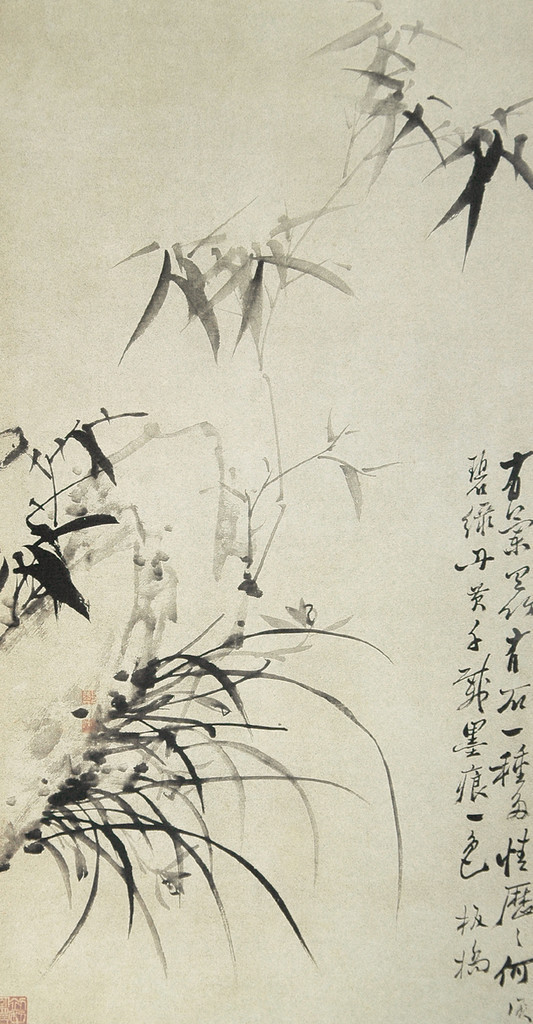 有蘭有竹有石一種多情歷々何須
碧綠丹黃千載墨痕一色 板橋